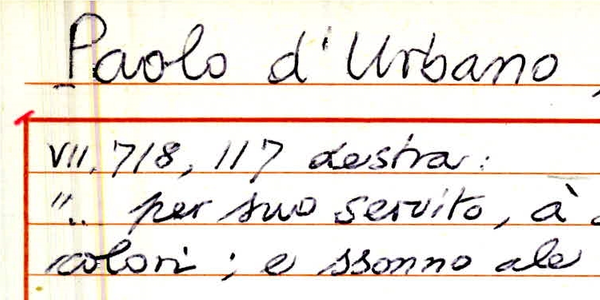 Paolo d'Urbano,
VII, 718, 117 destra:
".. per suo servito, à
colori; e ssonno ale